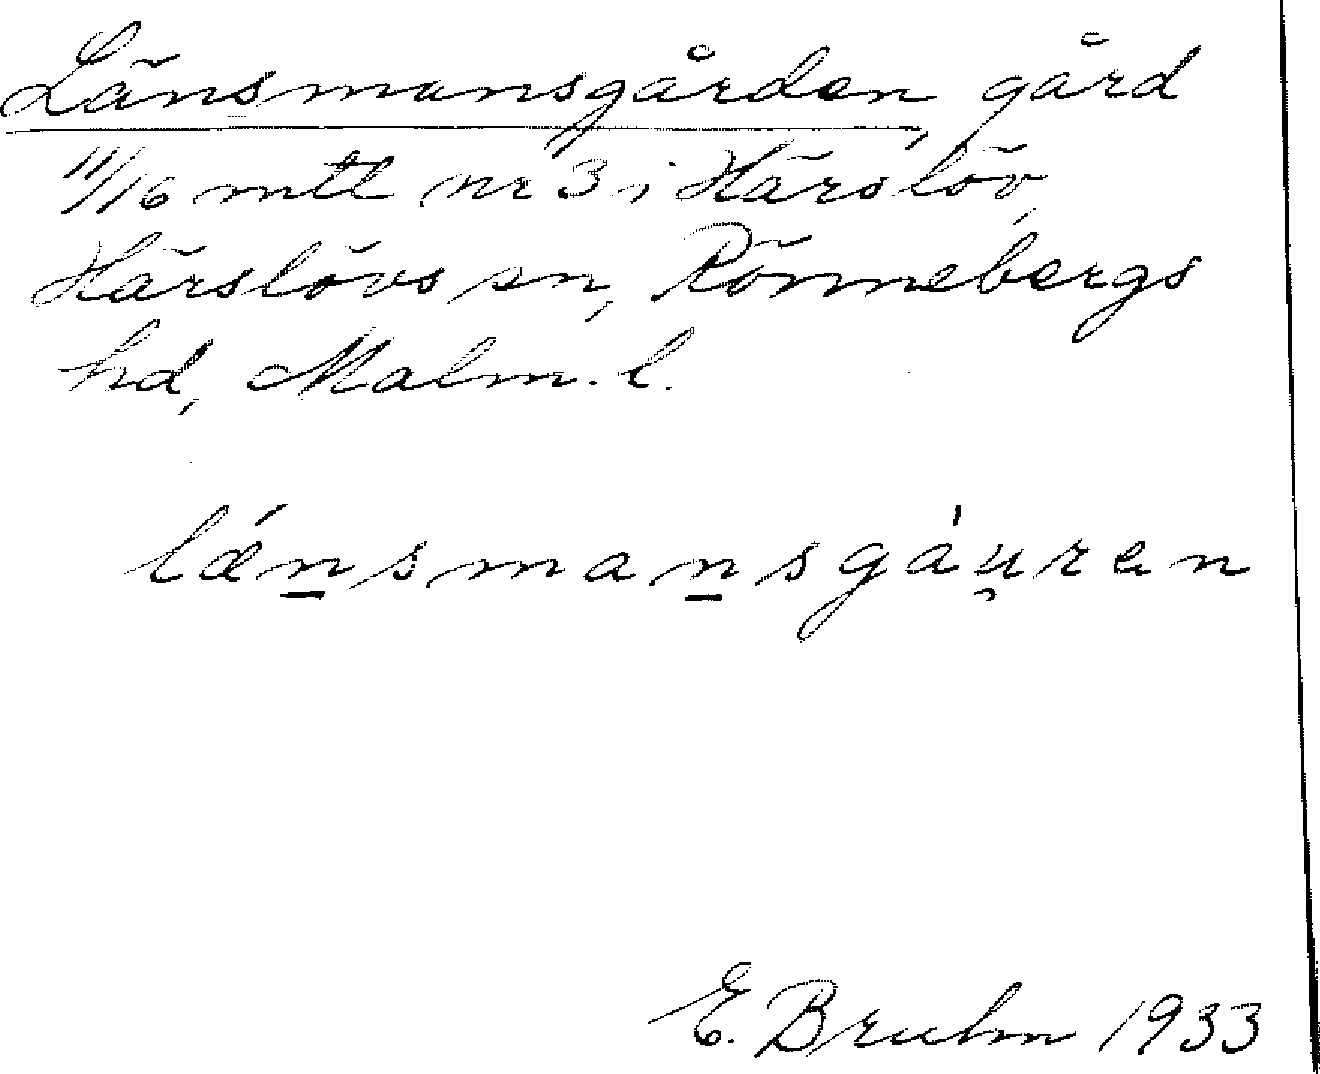 Länsmansgården, gård
11/16 mtl nr 3 i Härslöv,
Härslövs sn, Rönnebergs
hd, Malm. l.
lǽn̲sman̲sgáu̯ren
E. Bruhn 1933